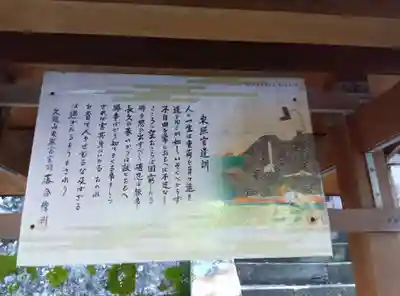 東照宮遺訓
人の一生は重荷を負て遠き
道をゆくが如しいそぐべからず
不自由を常とおもへば不足なし
こころに望おこらば困窮したる
時を思ひ出すべし堪忍は無事
長久の基いかりは敵とおもへ
勝事ばかり知てまくる事をしら
ざれば害其身にいたるおのれ
を責て人をせむるな及ばざる
は過たるよりまされり
久能山東照宮宮司 落合偉洲